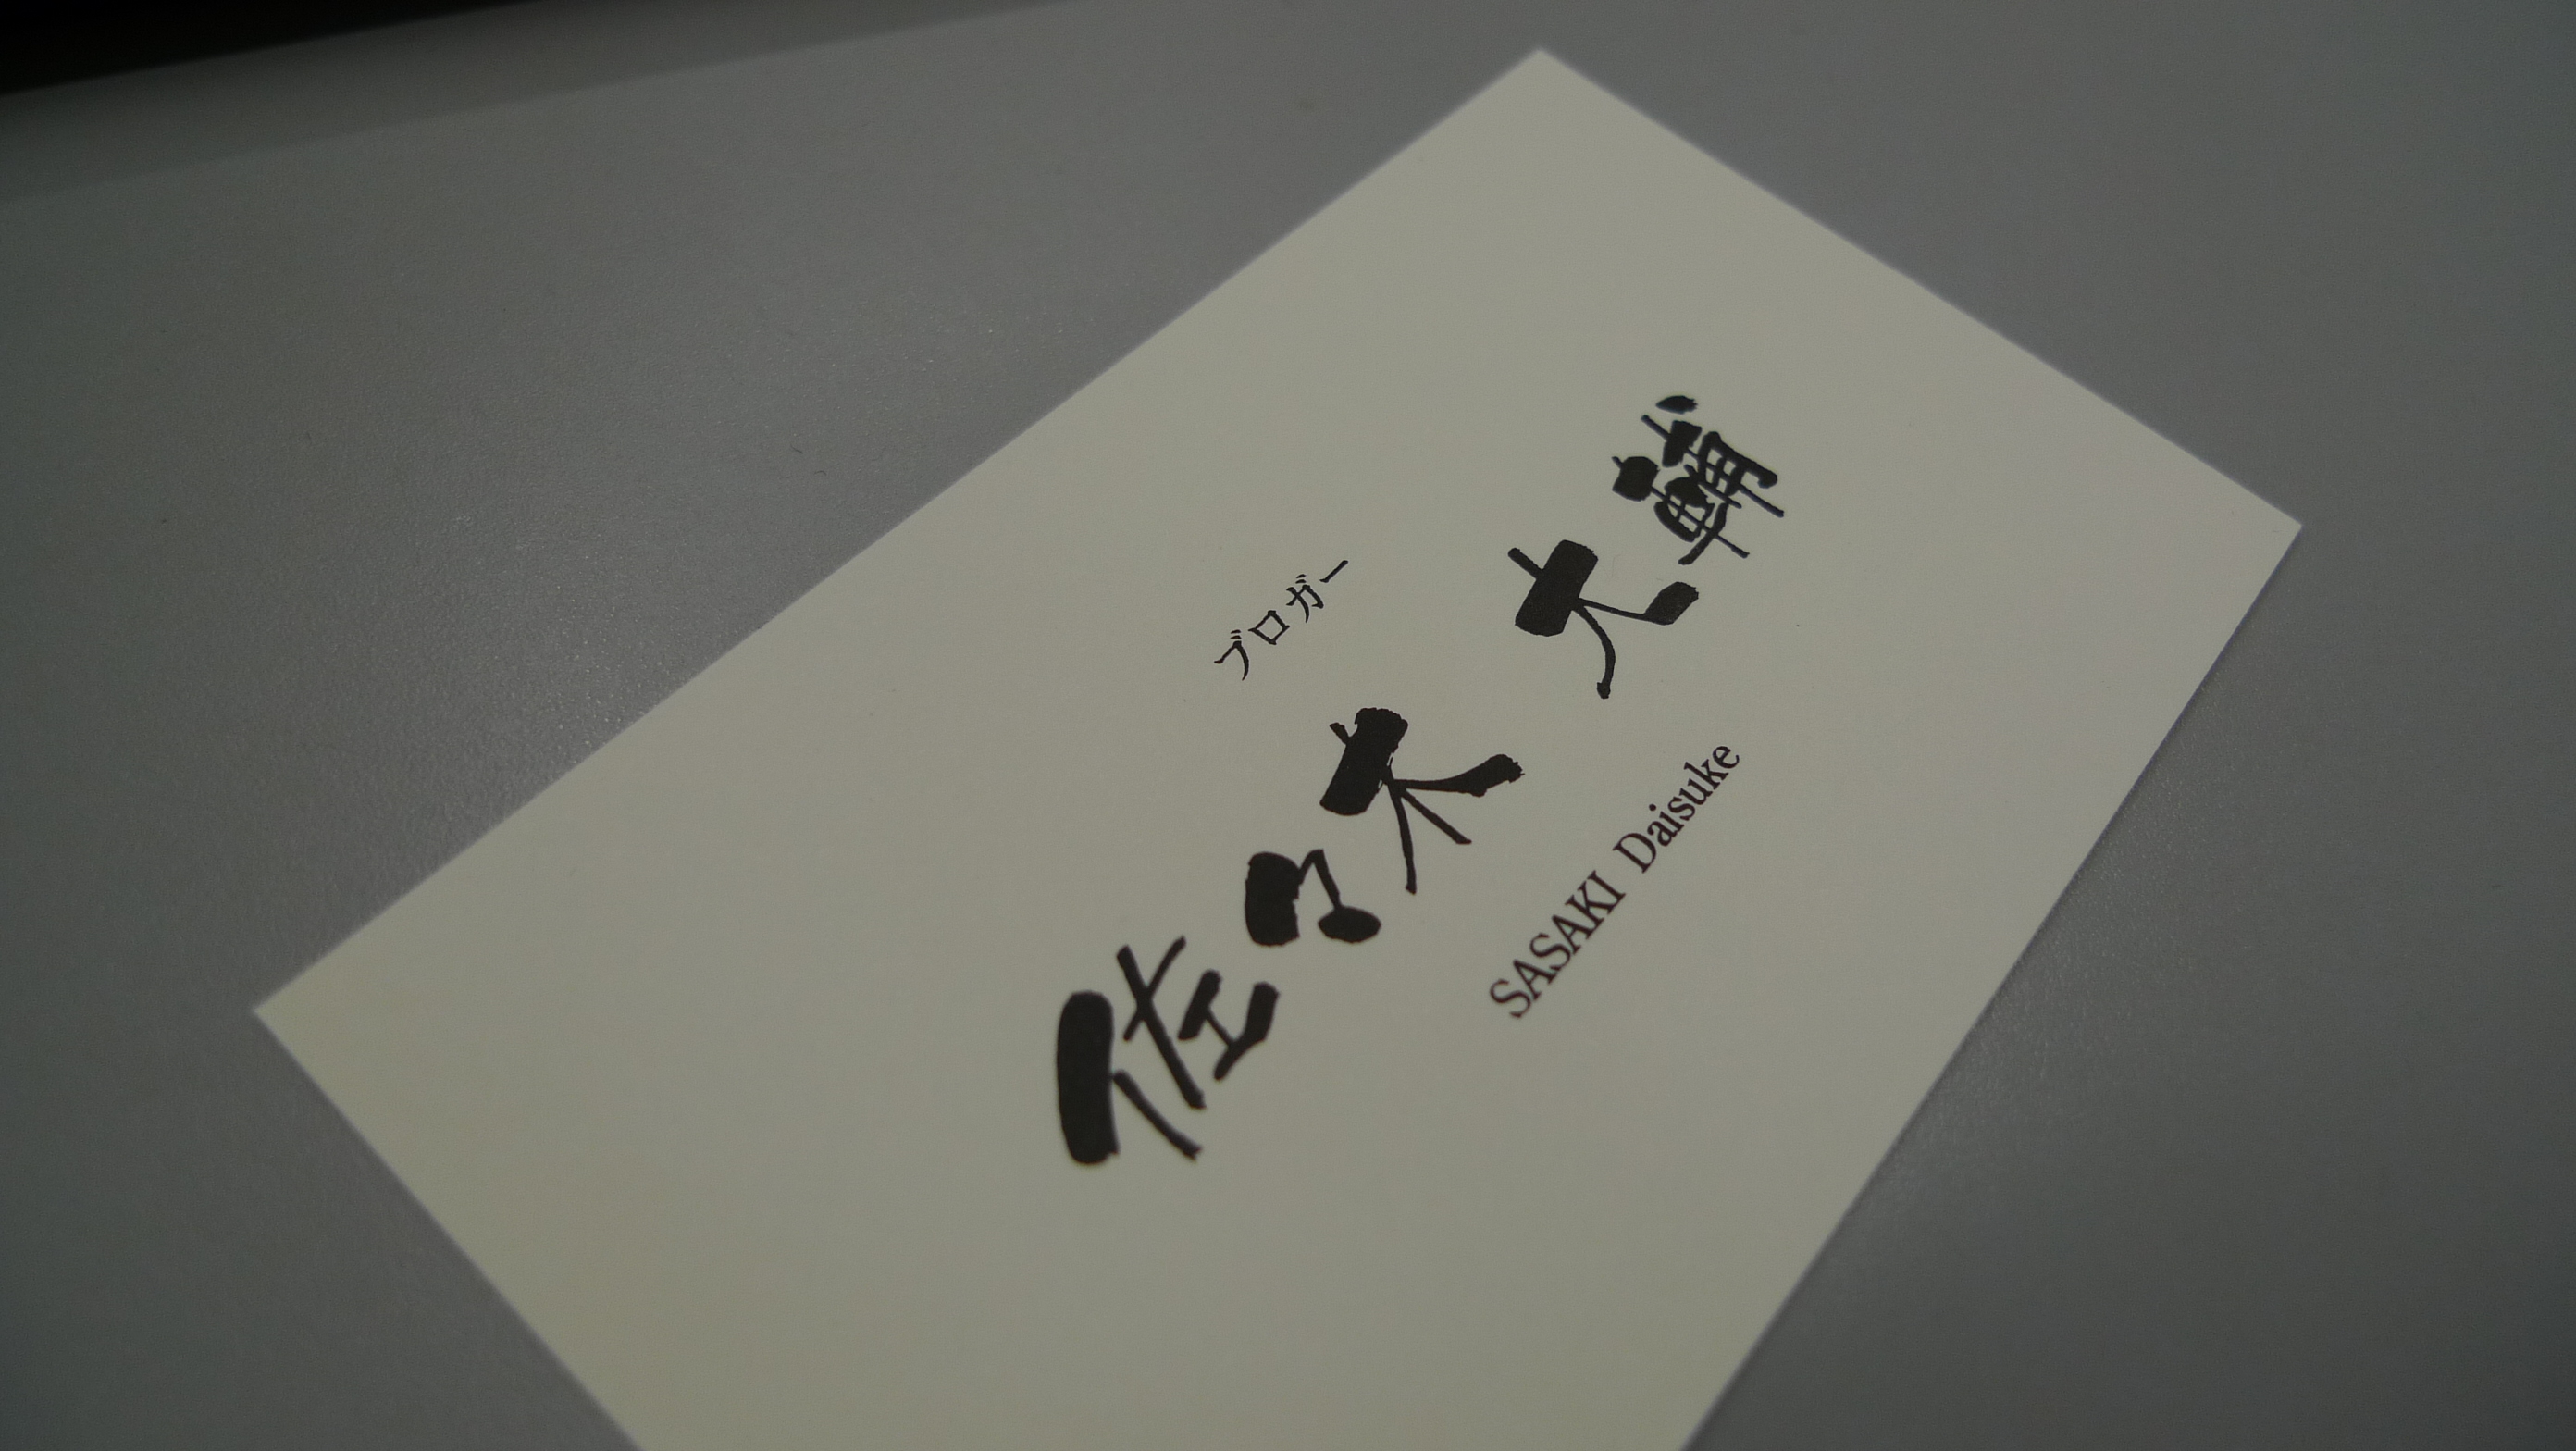 ブロガー
佐々木 大輔
SASAKI Daisuke